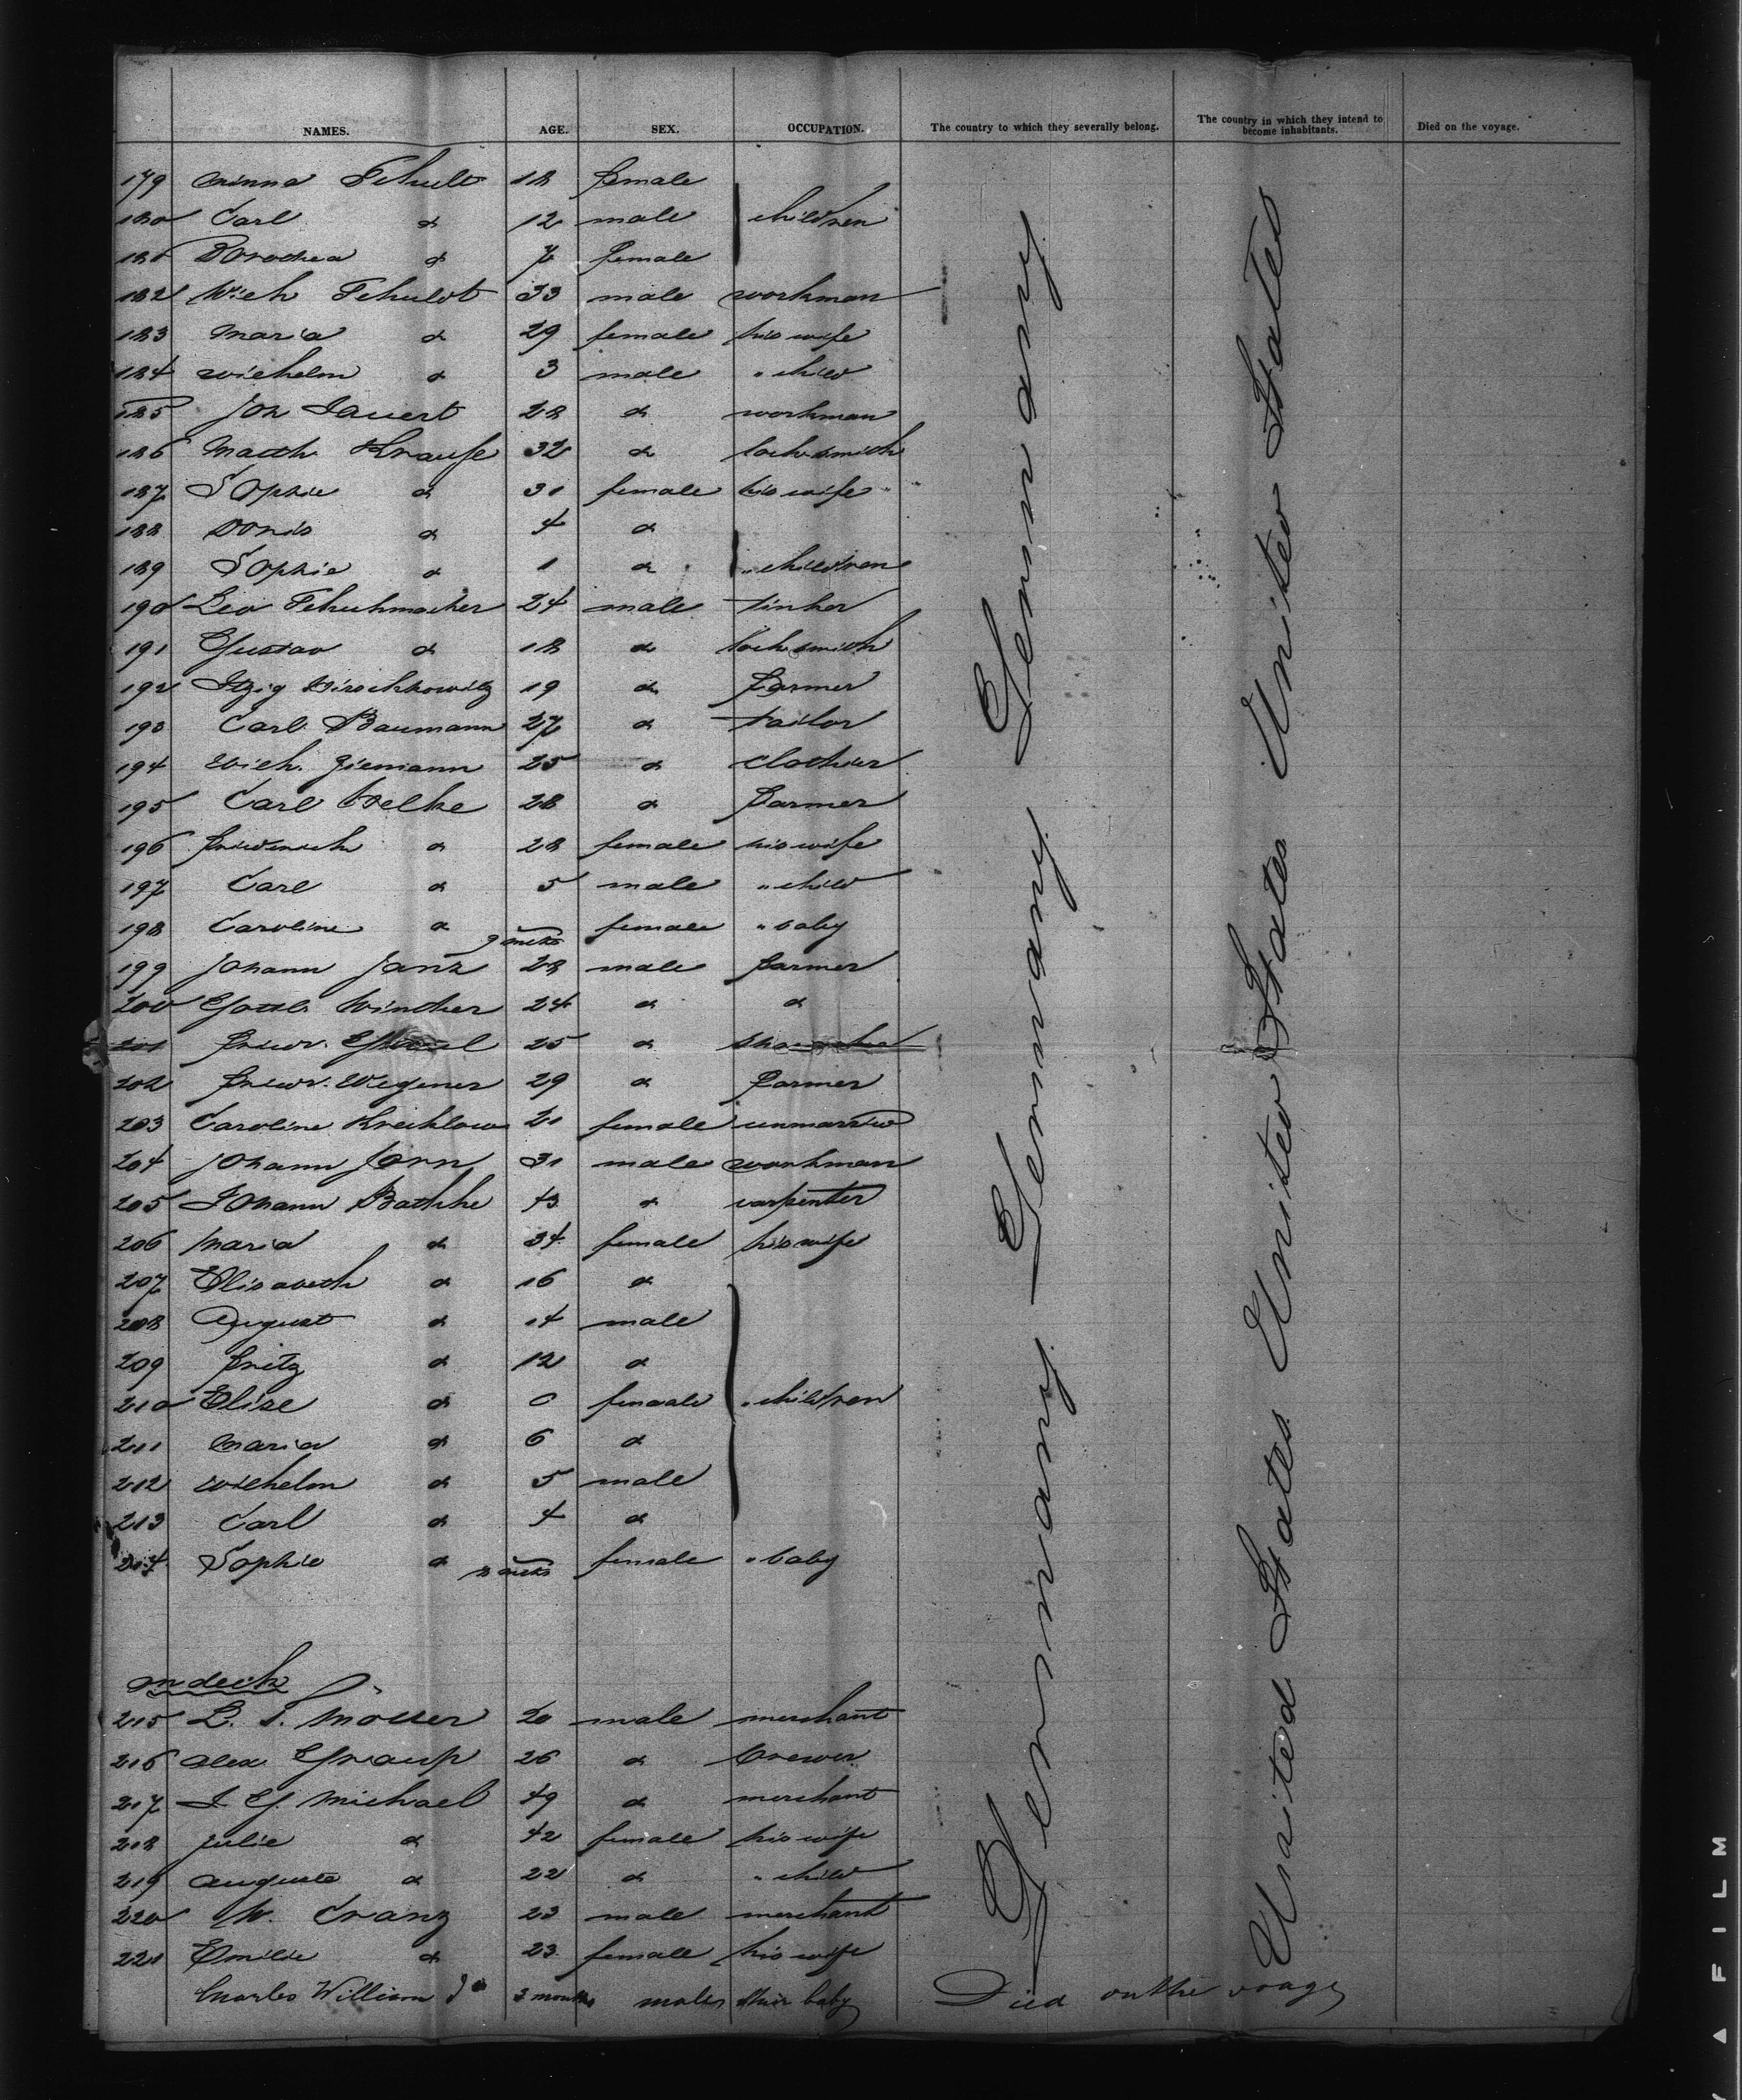 NAMES. AGE. SEX. OCCUPATION. The country to which they severally belong. The country in which they intend to become inhabitants. Died on the voyage.
179 Minna Schult 18 female
180 Carl do 12 male children
181 Dorothea do 7 female
182 Wilh Schuldt 33 male workman
183 Maria do 29 female his wife
184 Wilhelm do 3 male " child
185 Joh Sauert 28 do workman
186 Matth. Krauſe 32 do locksmith
187 Sophie do 31 female his wife
188 Doris do 4 do
189 Sophie do 1 do " children
190 Leo Schuhmacher 24 male tinker
191 Gustav do 18 do locksmith
192 Itzig Hirschkowitz 19 do farmer
193 Carl Baumann 27 do tailor
194 Wilh. Ziemann 25 do clothier
195 Carl Welke 28 do farmer
196 Friederich do 28 female his wife
197 Carl do 5 male " child
198 Caroline do 9 mths female " baby
199 Johann Janz 28 male farmer
200 Gottl. Winther 24 do do
201 Friedr. 25 do
202 Friedr. Wegener 29 do farmer
203 Caroline Kreihlow 21 female unmarried
204 Johann Jorn 31 male workman
205 Johann Bathke 43 do carpenter
206 Maria do 34 female his wife
207 Elisabeth do 16 do
208 August do 14 male
209 Fritz do 12 do
210 Elise do female " children
211 Maria do 6 do
212 Wilhelm do 5 male
213 Carl do 4 do
214 Sophie do mths female " baby
on deck
215 L. S. Moller 20 male merchant
216 Alex Graup 26 do brewer
217 I. G. Michael 49 do merchant
218 Julie do 42 female his wife
219 Auguste do 22 do " child
220 W. Cranz 23 male merchant
221 Emilie do 23. female his wife
Charles William do 3 months male their baby Died on the voage
Germany Germany Germany Germany
United States United States United States
FILM